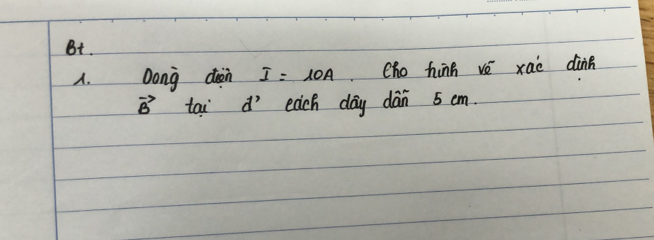 Bt.
1. Dòng điện I = 10A. Cho hình vẽ xác định
B⃗ tại đ' cách dây dẫn 5 cm.